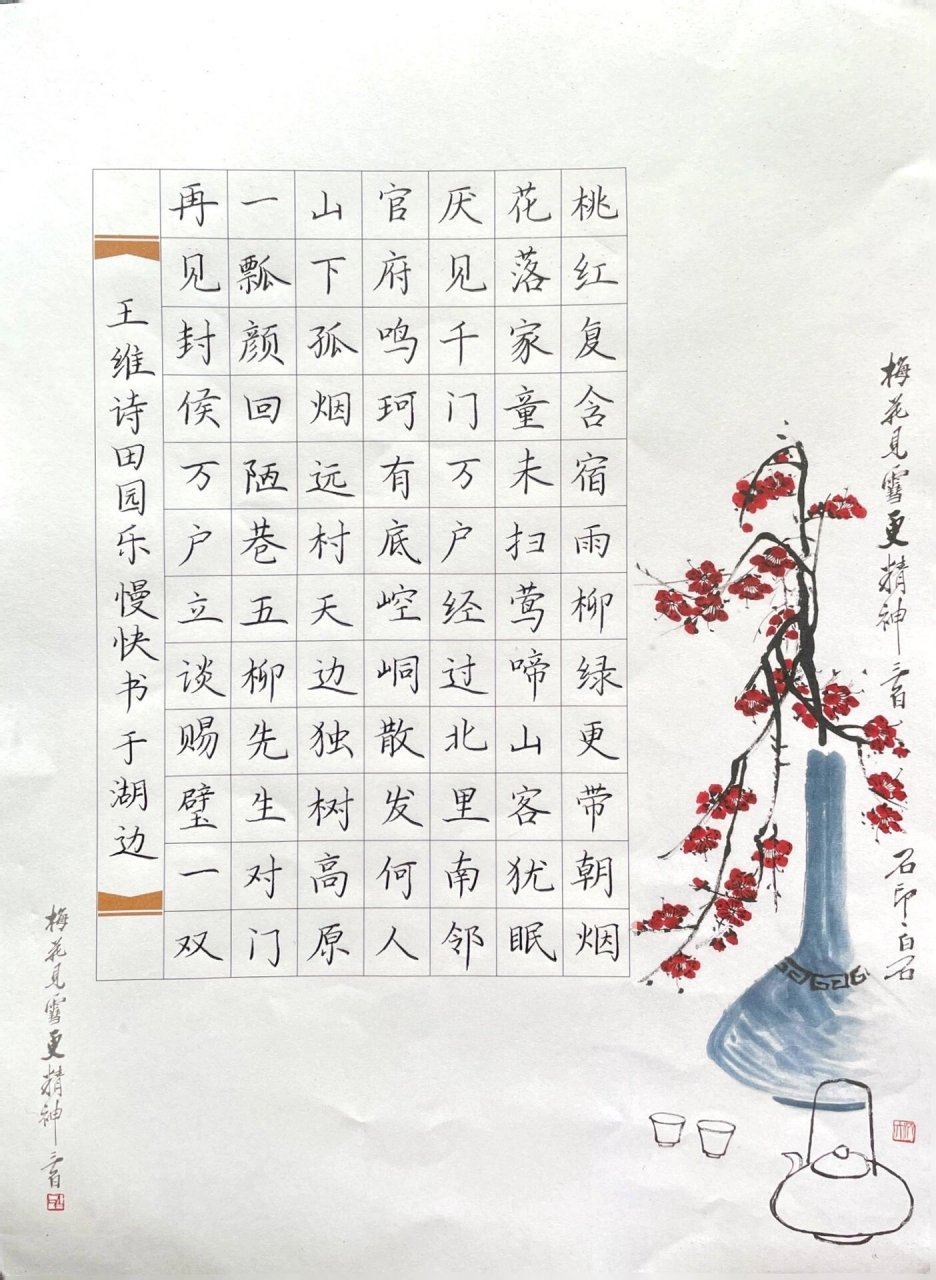 桃红复含宿雨柳绿更带朝烟
花落家童未扫莺啼山客犹眠
厌见千门万户经过北里南邻
官府鸣珂有底崆峒散发何人
山下孤烟远村天边独树高原
一瓢颜回陋巷五柳先生对门
再见封侯万户立谈赐璧一双
王维诗田园乐慢快书于湖边
梅花见雪更精神
石印白石
梅花见雪更精神